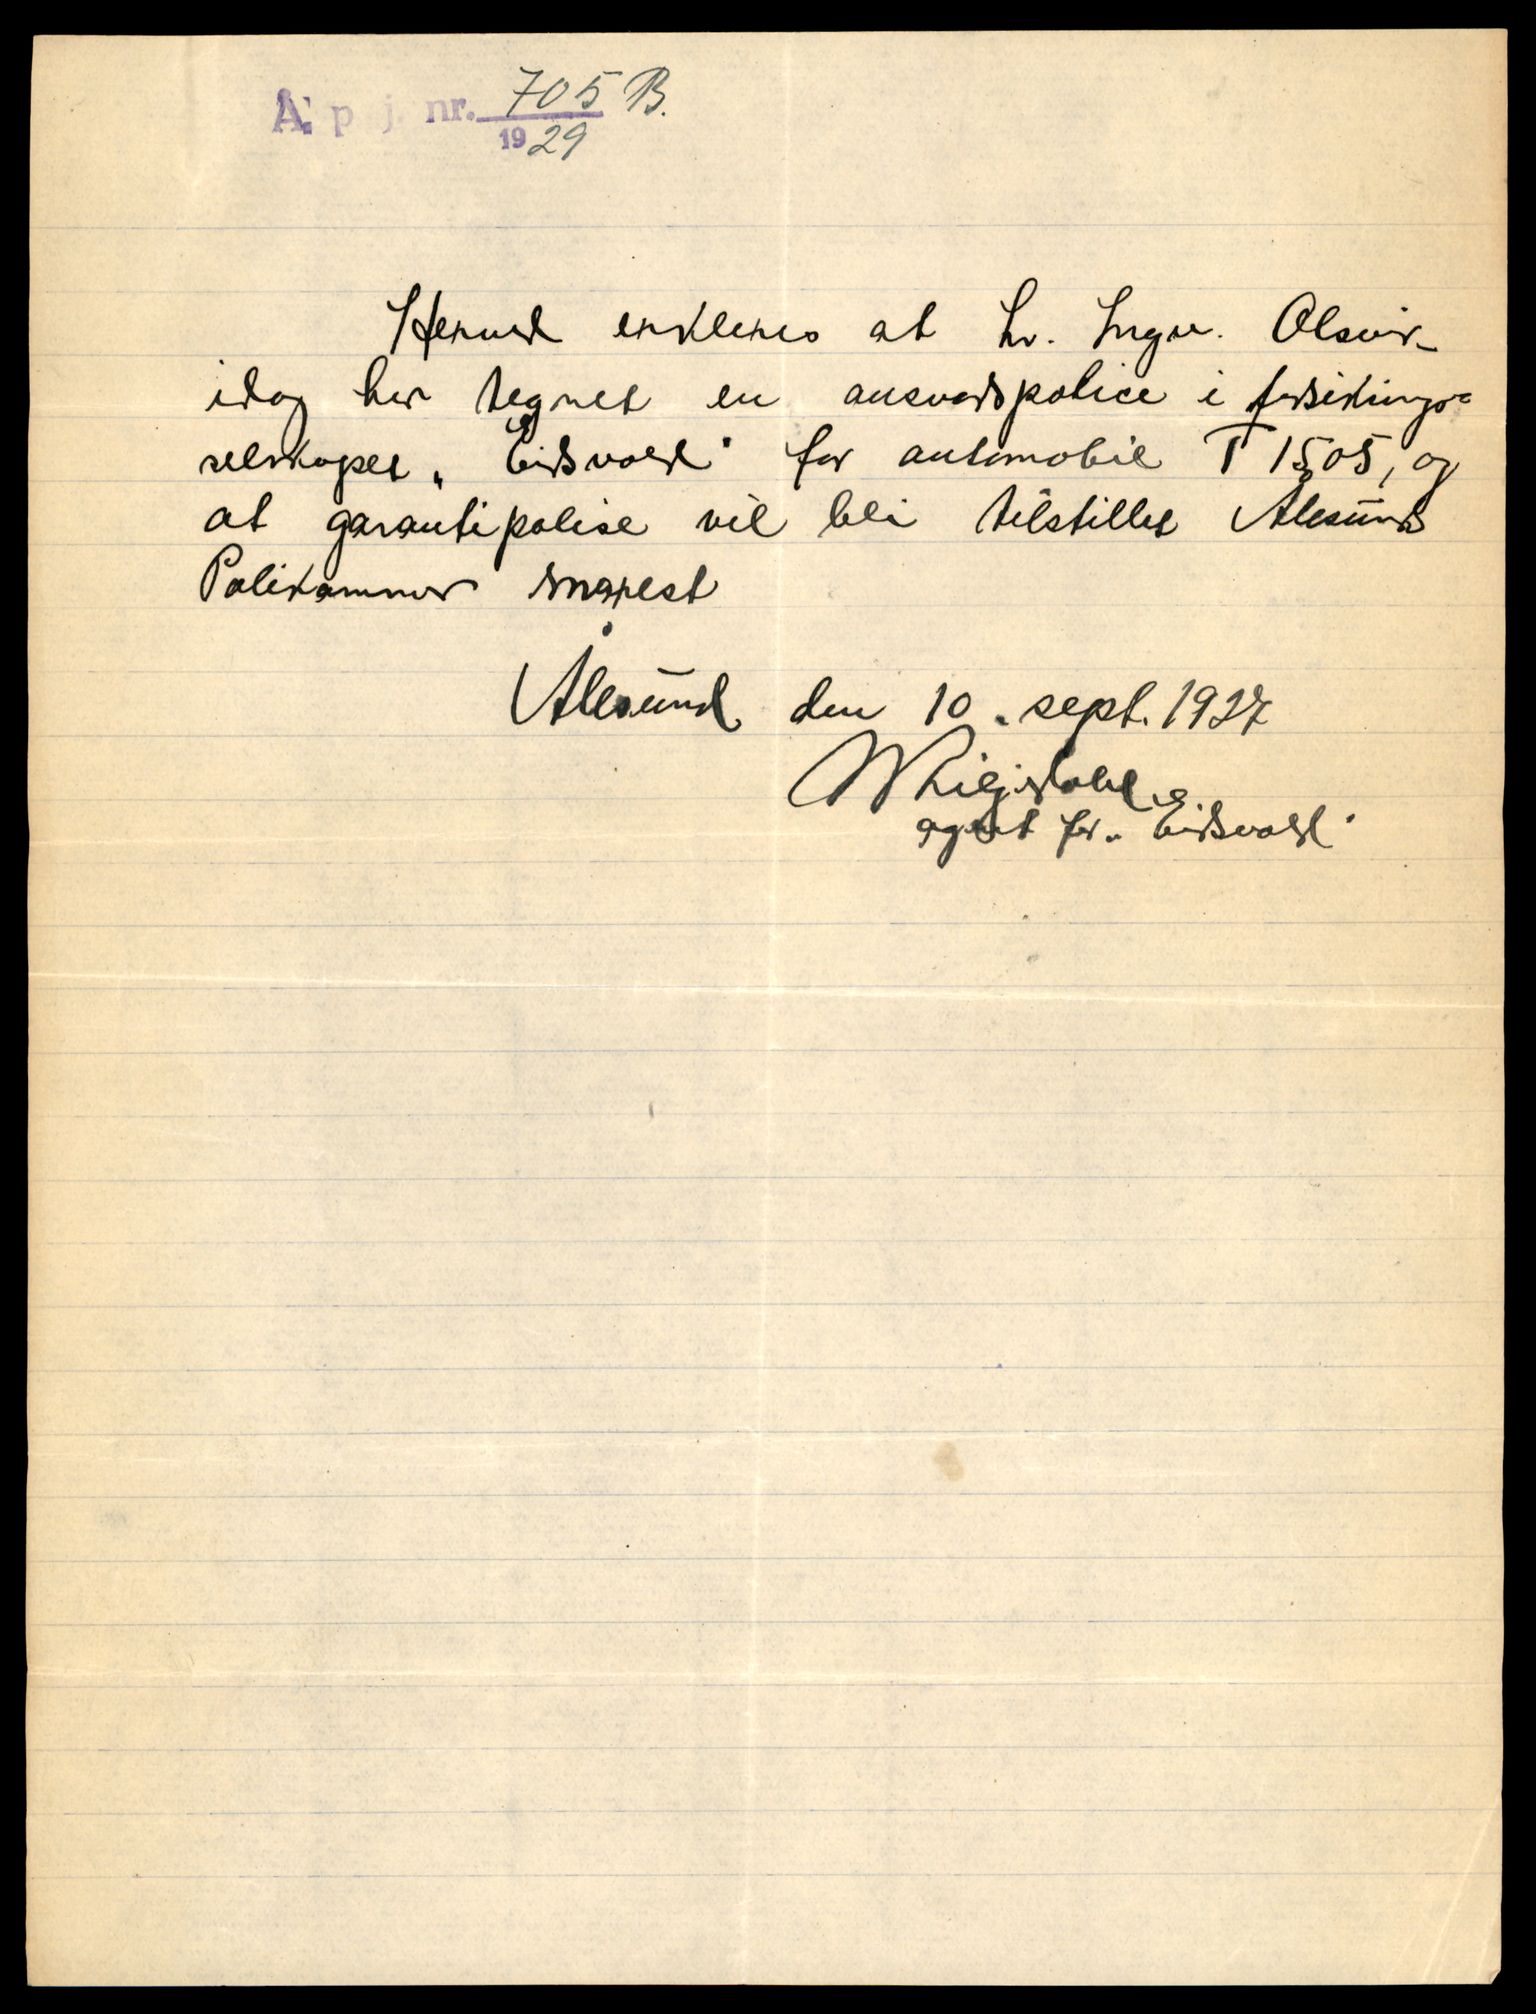 Å. p. j. nr. 705 B.
1929
Herved erklæres at hr. Ingv. Olsvik
idag har tegnet en ansvarspolice i forsikrings-
selskapet „Eidsvold" for automobil T 1505, og
at garantipolise vil bli tilstillet Ålesunds
Politikammer snarest
Ålesund den 10. sept. 1927
agent for „Eidsvold"